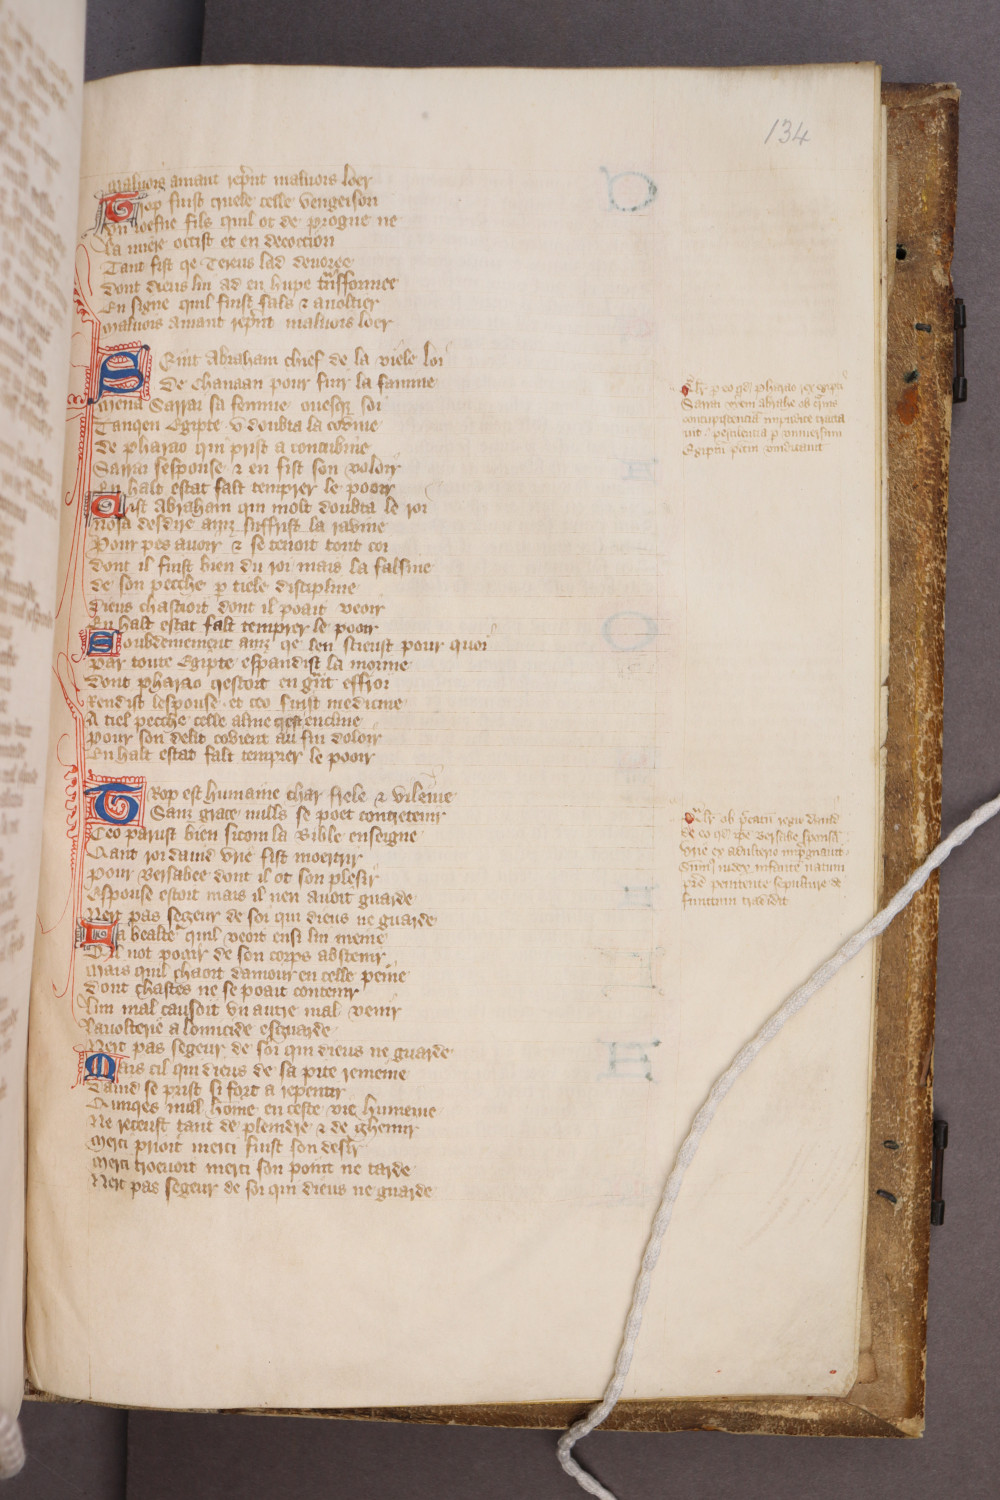 134
Malvois amant repnt malvois loer
Trop fuist cruele celle vengeison
Un joefne fils quil ot de Progne ne
La miere occist et en decoction
Tant fist qe Tereus lad devoree
Dont dieus lui ad en hupe trisformee
En signe quil fuist fals & avoltier
Malvois amant repnt malvois loer
Seint Abraham chief de la viele loi
De Chanaan pour fuir la famine
Mena Sarrai sa femme ovesqe soi
Tanqen Egipte u doubta la covine
De Pharao qui prist a concubine
Sarrai sespouse & en fist son voloir
En halt estat falt temprer le pooir
Cist Abraham qui molt doubta le roi
Nosa desdire ainz suffrist la ravine
Pour pes avoir & se tenoit tout coi
Dont il fuist bien du roi mais la falsine
De son pecche p tiele discipline
Dieus chastioit dont il poait veoir
En halt estat falt temprer le pooir
Soubdeinement ainz qe len scieust pour quoi
Par toute Egipte espandist la morine
Dont Pharao qestoit en grnt effroi
Rendist lespouse et ceo fuist medicine
A tiel pecche celle alme qest encline
Pour son delit covient au fin doloir
En halt estat falt temprer le pooir
Trop est humaine char frele & vileine
Sanz grace nulls se poet contretenir
Ceo parust bien sicom la Bible enseigne
Qant roi david Urie fist moertrir
Pour Bersabee dont il ot son plesir
Espouse estoit mais il nen avoit guarde
Nert pas segeur de soi qui dieus ne guarde
La bealte quil veoit ensi lui meine
Qil not pooir de son corps abstenir
Mais quil chaoit damour en celle peine
Dont chastes ne se poait contenir
Lun mal causoit un autre mal venir
Lavolterie a lomicide esguarde
Nert pas segeur de soi qui dieus ne guarde
Mais cil qui dieus de sa pite remeine
David se prist si fort a repentir
Qunqes null home en ceste vie humeine
Ne receust tant de pleindre & de ghemir
Merci prioit merci fuist son desir
Merci troevoit merci son point ne tarde
Nert pas segeur de soi qui dieus ne guarde
Qlr p eo qd Pharao rex egipti
Sarrai Abrahe ob
concupiscencia impudice
pestilencia p universum
Egiptu vindicavit
Qlr ob regis david
de eo qd ipe Bersabe sponsa
Urie ex adulterio impgnavit
Summus iudex infante natum
pre penitente sepulture de
functum tradidit